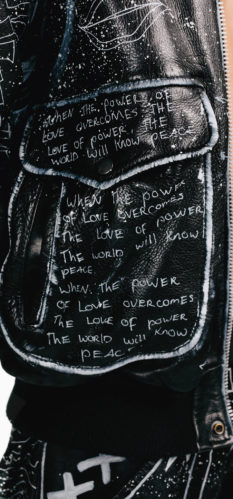 WHEN THE POWER OF
LOVE OVERCOMES THE
LOVE OF POWER, THE
WORLD WILL KNOW PEACE
WHEN THE POWER
OF LOVE OVERCOMES
THE LOVE OF POWER
THE WORLD WILL KNOW
PEACE.
WHEN THE POWER
OF LOVE OVERCOMES
THE LOVE OF POWER
THE WORLD WILL KNOW
PEAC